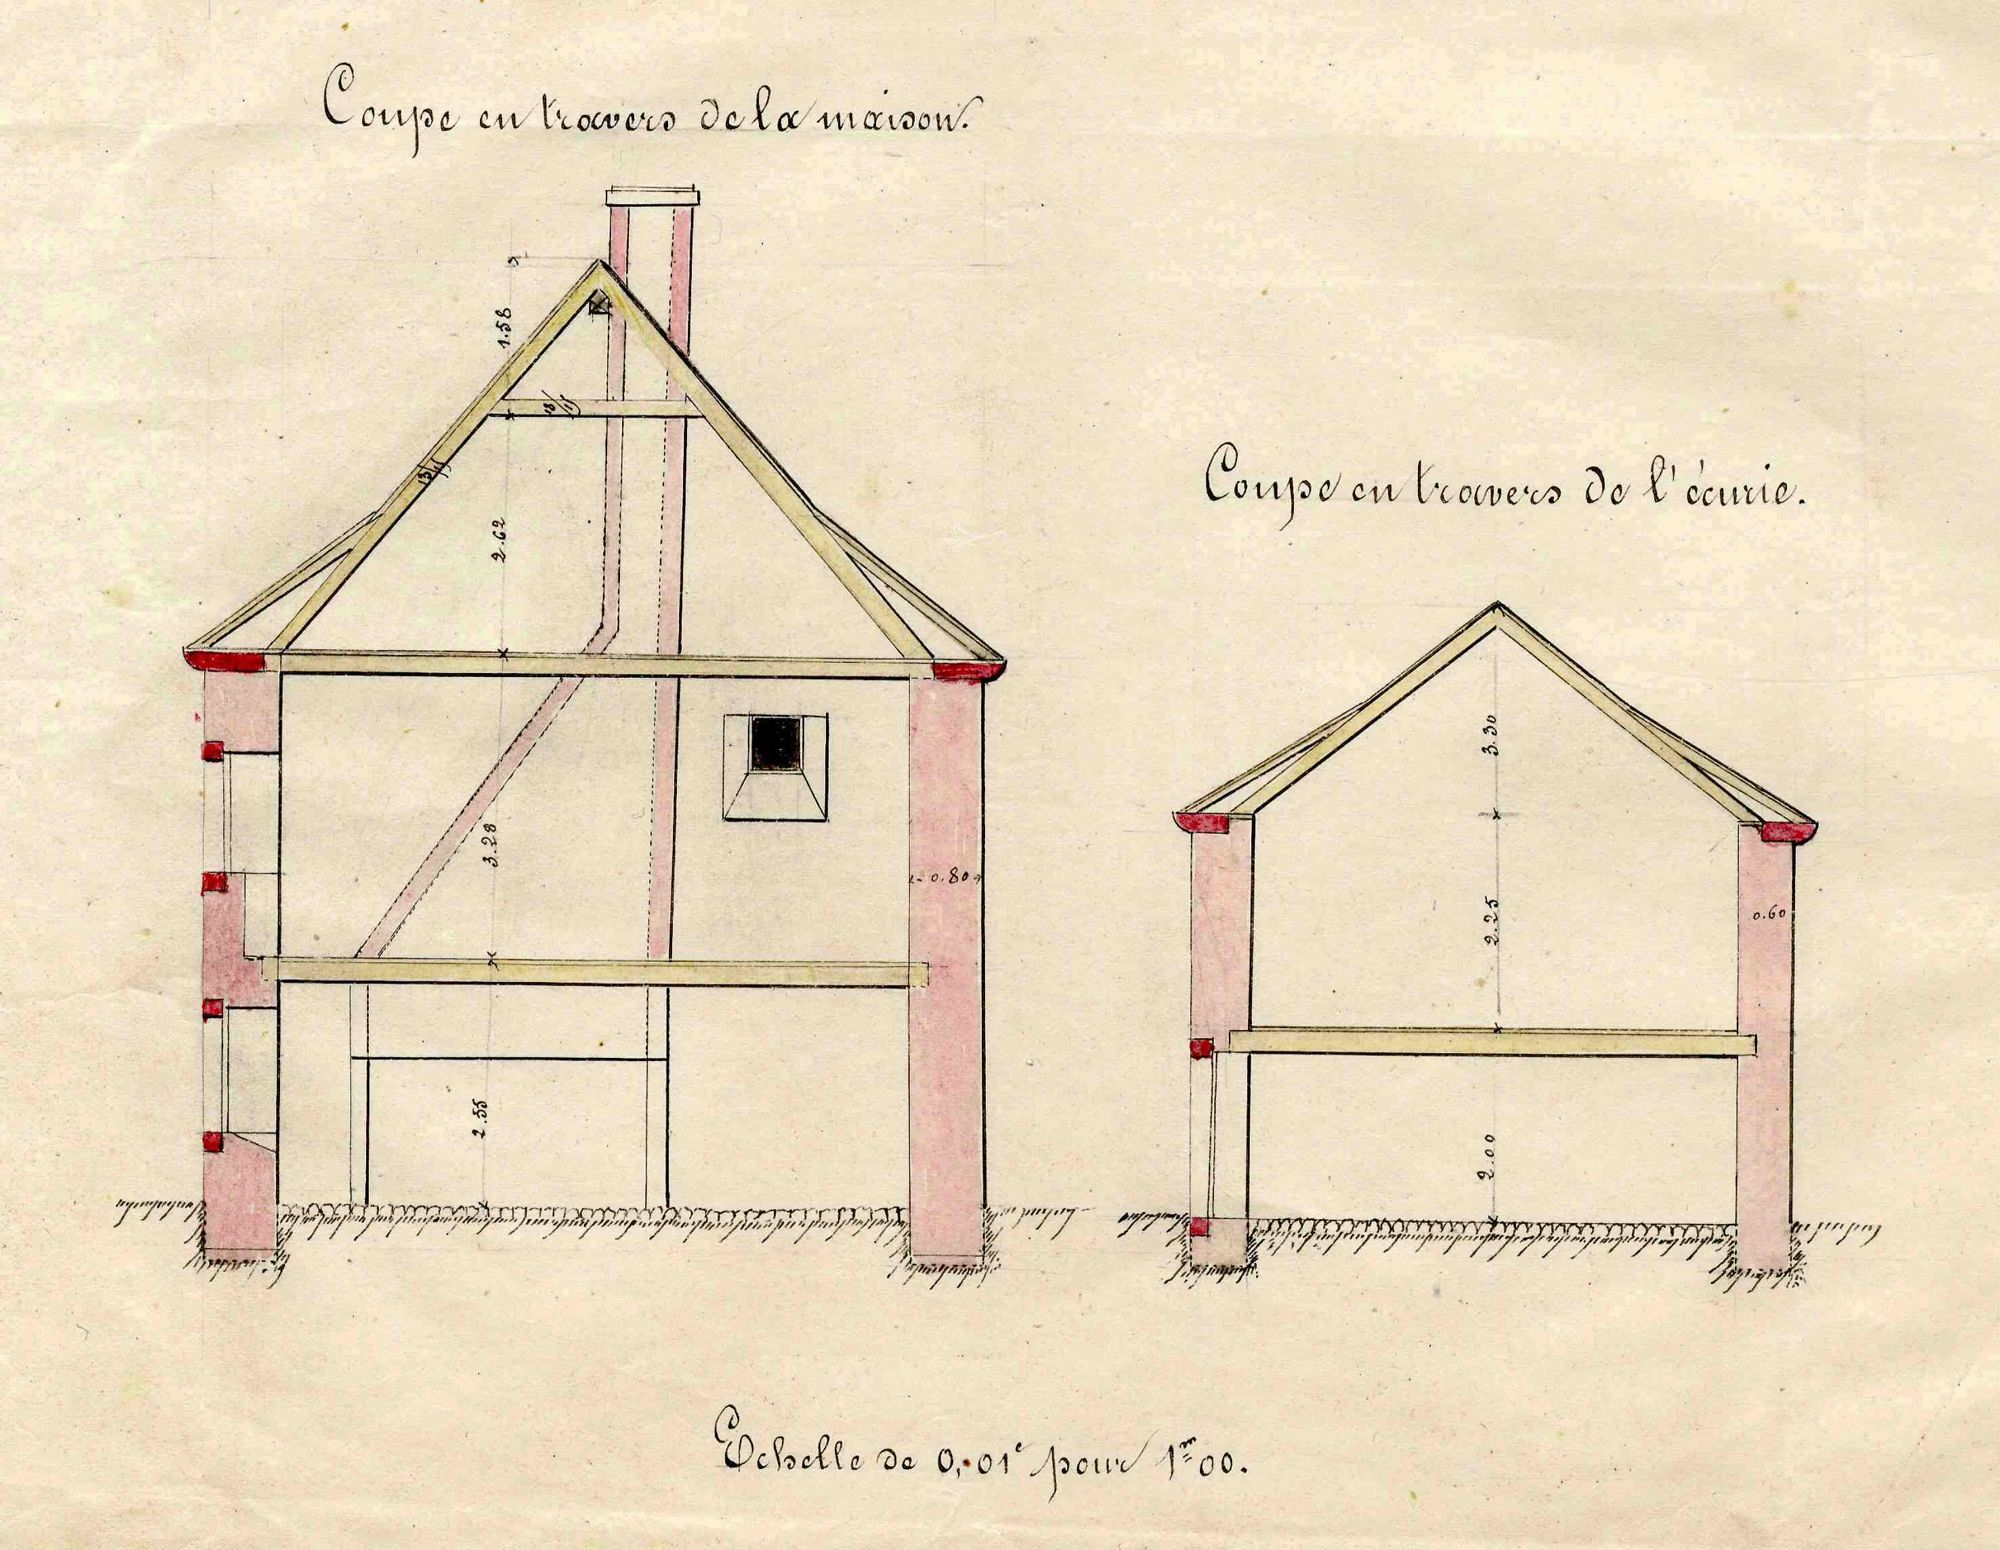 Coupe en travers de la maison.
1.58
2.62
3.28
0.80
2.55
Coupe en travers de l'écurie.
3.30
2.25
0.60
2.00
Echelle de 0,01c pour 1m00.